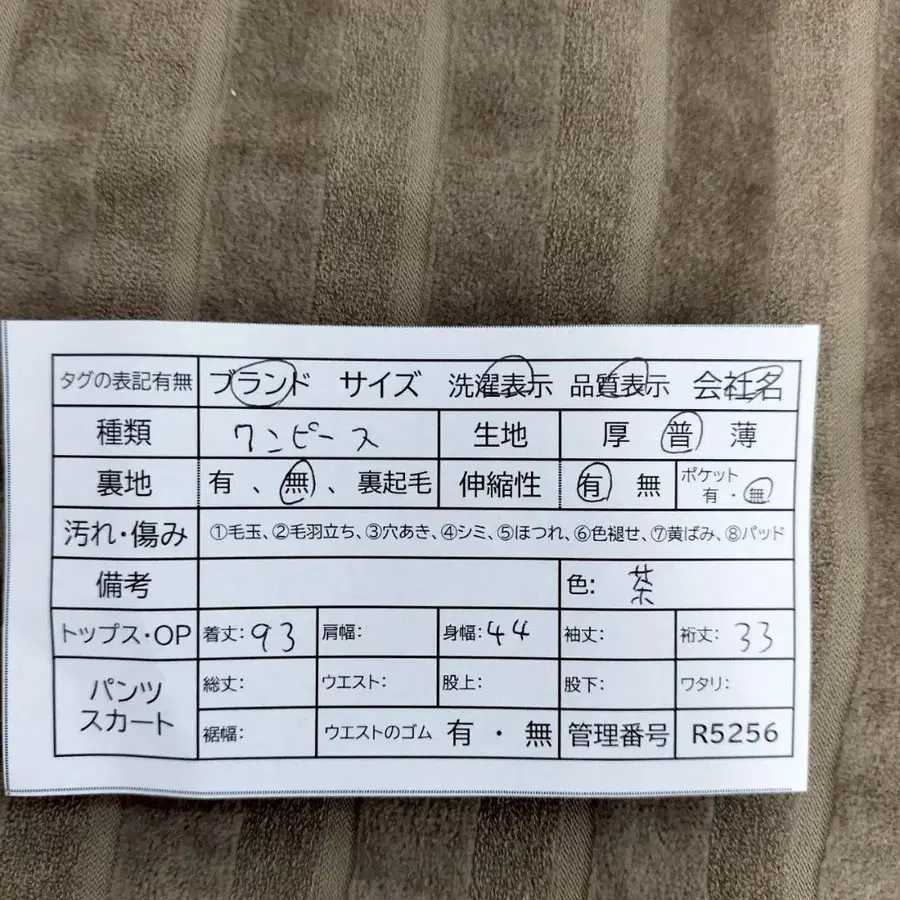 タグの表記有無 ブランド サイズ 洗濯表示 品質表示 会社名
種類 ワンピース 生地 厚 普 薄
裏地 有 、 無 、 裏起毛 伸縮性 有 無 ポケット 有・無
汚れ・傷み ①毛玉、②毛羽立ち、③穴あき、④シミ、⑤ほつれ、⑥色褪せ、⑦黄ばみ、⑧パッド
備考 色: 茶
トップス・OP 着丈: 93 肩幅: 身幅: 44 袖丈: 裄丈: 33
パンツ スカート 総丈: ウエスト: 股上: 股下: ワタリ:
裾幅: ウエストのゴム 有 ・ 無 管理番号 R5256